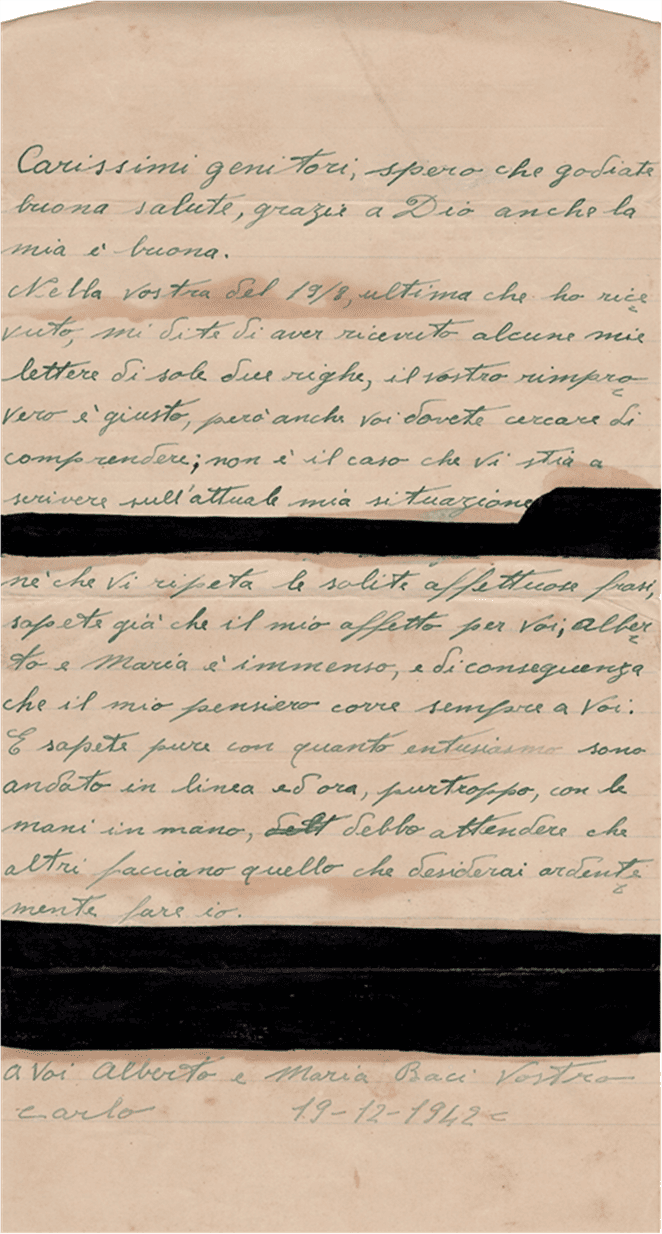 Carissimi genitori, spero che godiate
buona salute, grazie a Dio anche la
mia è buona.
Nella vostra del 19/8, ultima che ho rice
vuto, mi dite di aver ricevuto alcune mie
lettere di sole due righe, il vostro rimpro
vero è giusto, però anche voi dovete cercare di
comprendere; non è il caso che vi stia a
scrivere sull'attuale mia situazione
nè che vi ripeta le solite affettuose frasi,
sapete già che il mio affetto per voi, Alber
to e Maria è immenso, e di conseguenza
che il mio pensiero corre sempre a voi.
E sapete pure con quanto entusiasmo sono
andato in linea ed ora, purtroppo, con le
mani in mano, debbo attendere che
altri facciano quello che desiderai ardente
mente fare io.
a voi Alberto e Maria Baci Vostro
Carlo 19-12-1942